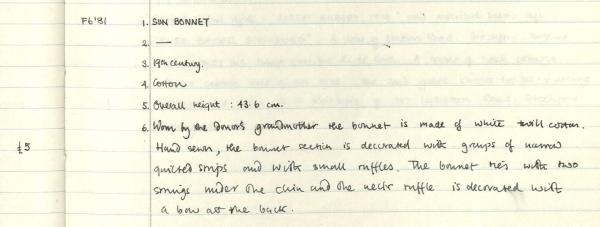 F6'81 1. SUN BONNET
2. —
3. 19th century.
4. Cotton
5. Overall height : 43.6 cm.
6. Worn by the donor's grandmother the bonnet is made of white twill cotton.
£5 Hand sewn, the bonnet section is decorated with groups of narrow
quilted strips and with small ruffles. The bonnet ties with two
strings under the chin and the neck ruffle is decorated with
a bow at the back.